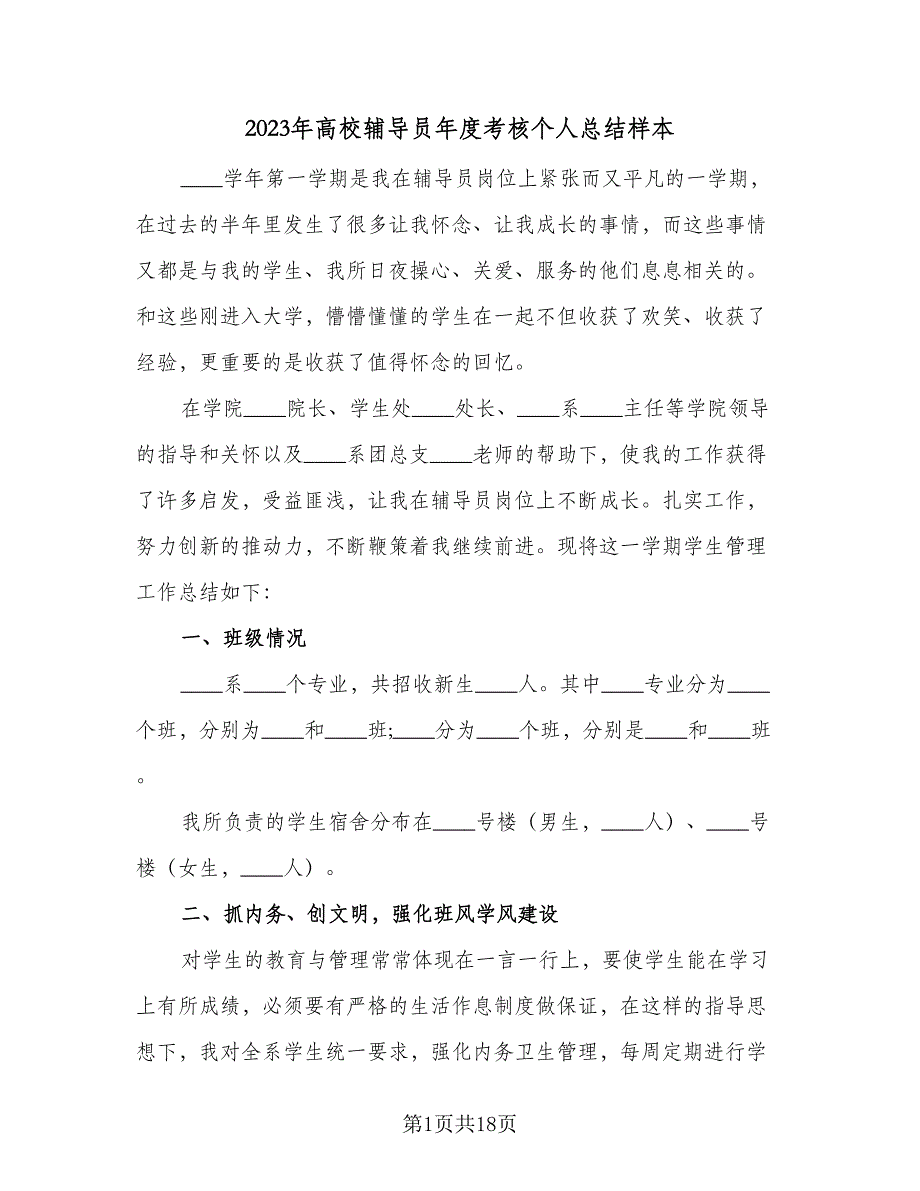 2023年高校辅导员年度考核个人总结样本
____学年第一学期是我在辅导员岗位上紧张而又平凡的一学期，
在过去的半年里发生了很多让我怀念、让我成长的事情，而这些事情
又都是与我的学生、我所日夜操心、关爱、服务的他们息息相关的。
和这些刚进入大学，懵懵懂懂的学生在一起不但收获了欢笑、收获了
经验，更重要的是收获了值得怀念的回忆。
在学院____院长、学生处____处长、____系____主任等学院领导
的指导和关怀以及____系团总支____老师的帮助下，使我的工作获得
了许多启发，受益匪浅，让我在辅导员岗位上不断成长。扎实工作，
努力创新的推动力，不断鞭策着我继续前进。现将这一学期学生管理
工作总结如下：
一、班级情况
____系____个专业，共招收新生____人。其中____专业分为____
个班，分别为____和____班;____分为____个班，分别是____和____班
。
我所负责的学生宿舍分布在____号楼（男生，____人）、____号
楼（女生，____人）。
二、抓内务、创文明，强化班风学风建设
对学生的教育与管理常常体现在一言一行上，要使学生能在学习
上有所成绩，必须要有严格的生活作息制度做保证，在这样的指导思
想下，我对全系学生统一要求，强化内务卫生管理，每周定期进行学
第1页共18页